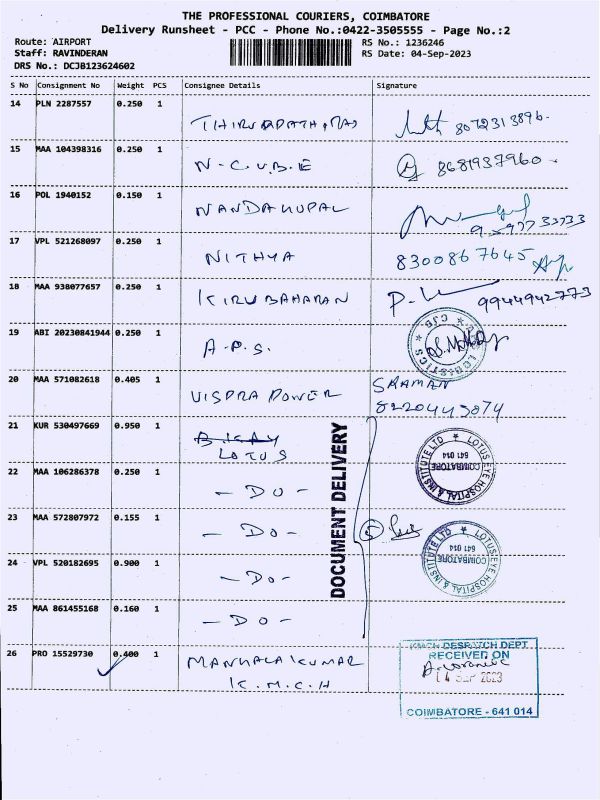 THE PROFESSIONAL COURIERS, COIMBATORE
Delivery Runsheet - PCC - Phone No.:0422-3505555 - Page No.:2
Route: AIRPORT RS No.: 1236246
Staff: RAVINDERAN RS Date: 04-Sep-2023
DRS No.: DCJB123624602
S No Consignment No Weight PCS Consignee Details Signature
14 PLN 2287557 0.250 1
8072313896.
15 MAA 104398316 0.250 1
N-C.U.B.E 8681937960
16 POL 1940152 0.150 1
NANDAKUPAL
17 VPL 521268097 0.250 1
NITHYA 8300867645
18 MAA 938077657 0.250 1
KIRUBAHARAN 9944942773
19 ABI 20230841944 0.250 1
A.P.S.
LOGISTICS ★ CJB ★
20 MAA 571082618 0.405 1
VISPRA POWER SRAMAN
8220443074
21 KUR 530497669 0.950 1
LOTUS
LOTUS EYE HOSPITAL & INSTITUTE LTD ★
COIMBATORE
641 014
22 MAA 106286378 0.250 1
- DO -
DOCUMENT DELIVERY
23 MAA 572807972 0.155 1
- DO - 5
LOTUS EYE HOSPITAL & INSTITUTE LTD ★
COIMBATORE
641 014
24 VPL 520182695 0.900 1
- DO -
25 MAA 861455168 0.160 1
- DO -
26 PRO 15529730 0.400 1
MANHALAKUMAR
K.M.C.H
KMCH DESPATCH DEPT
RECEIVED ON
04 SEP 2023
COIMBATORE - 641 014